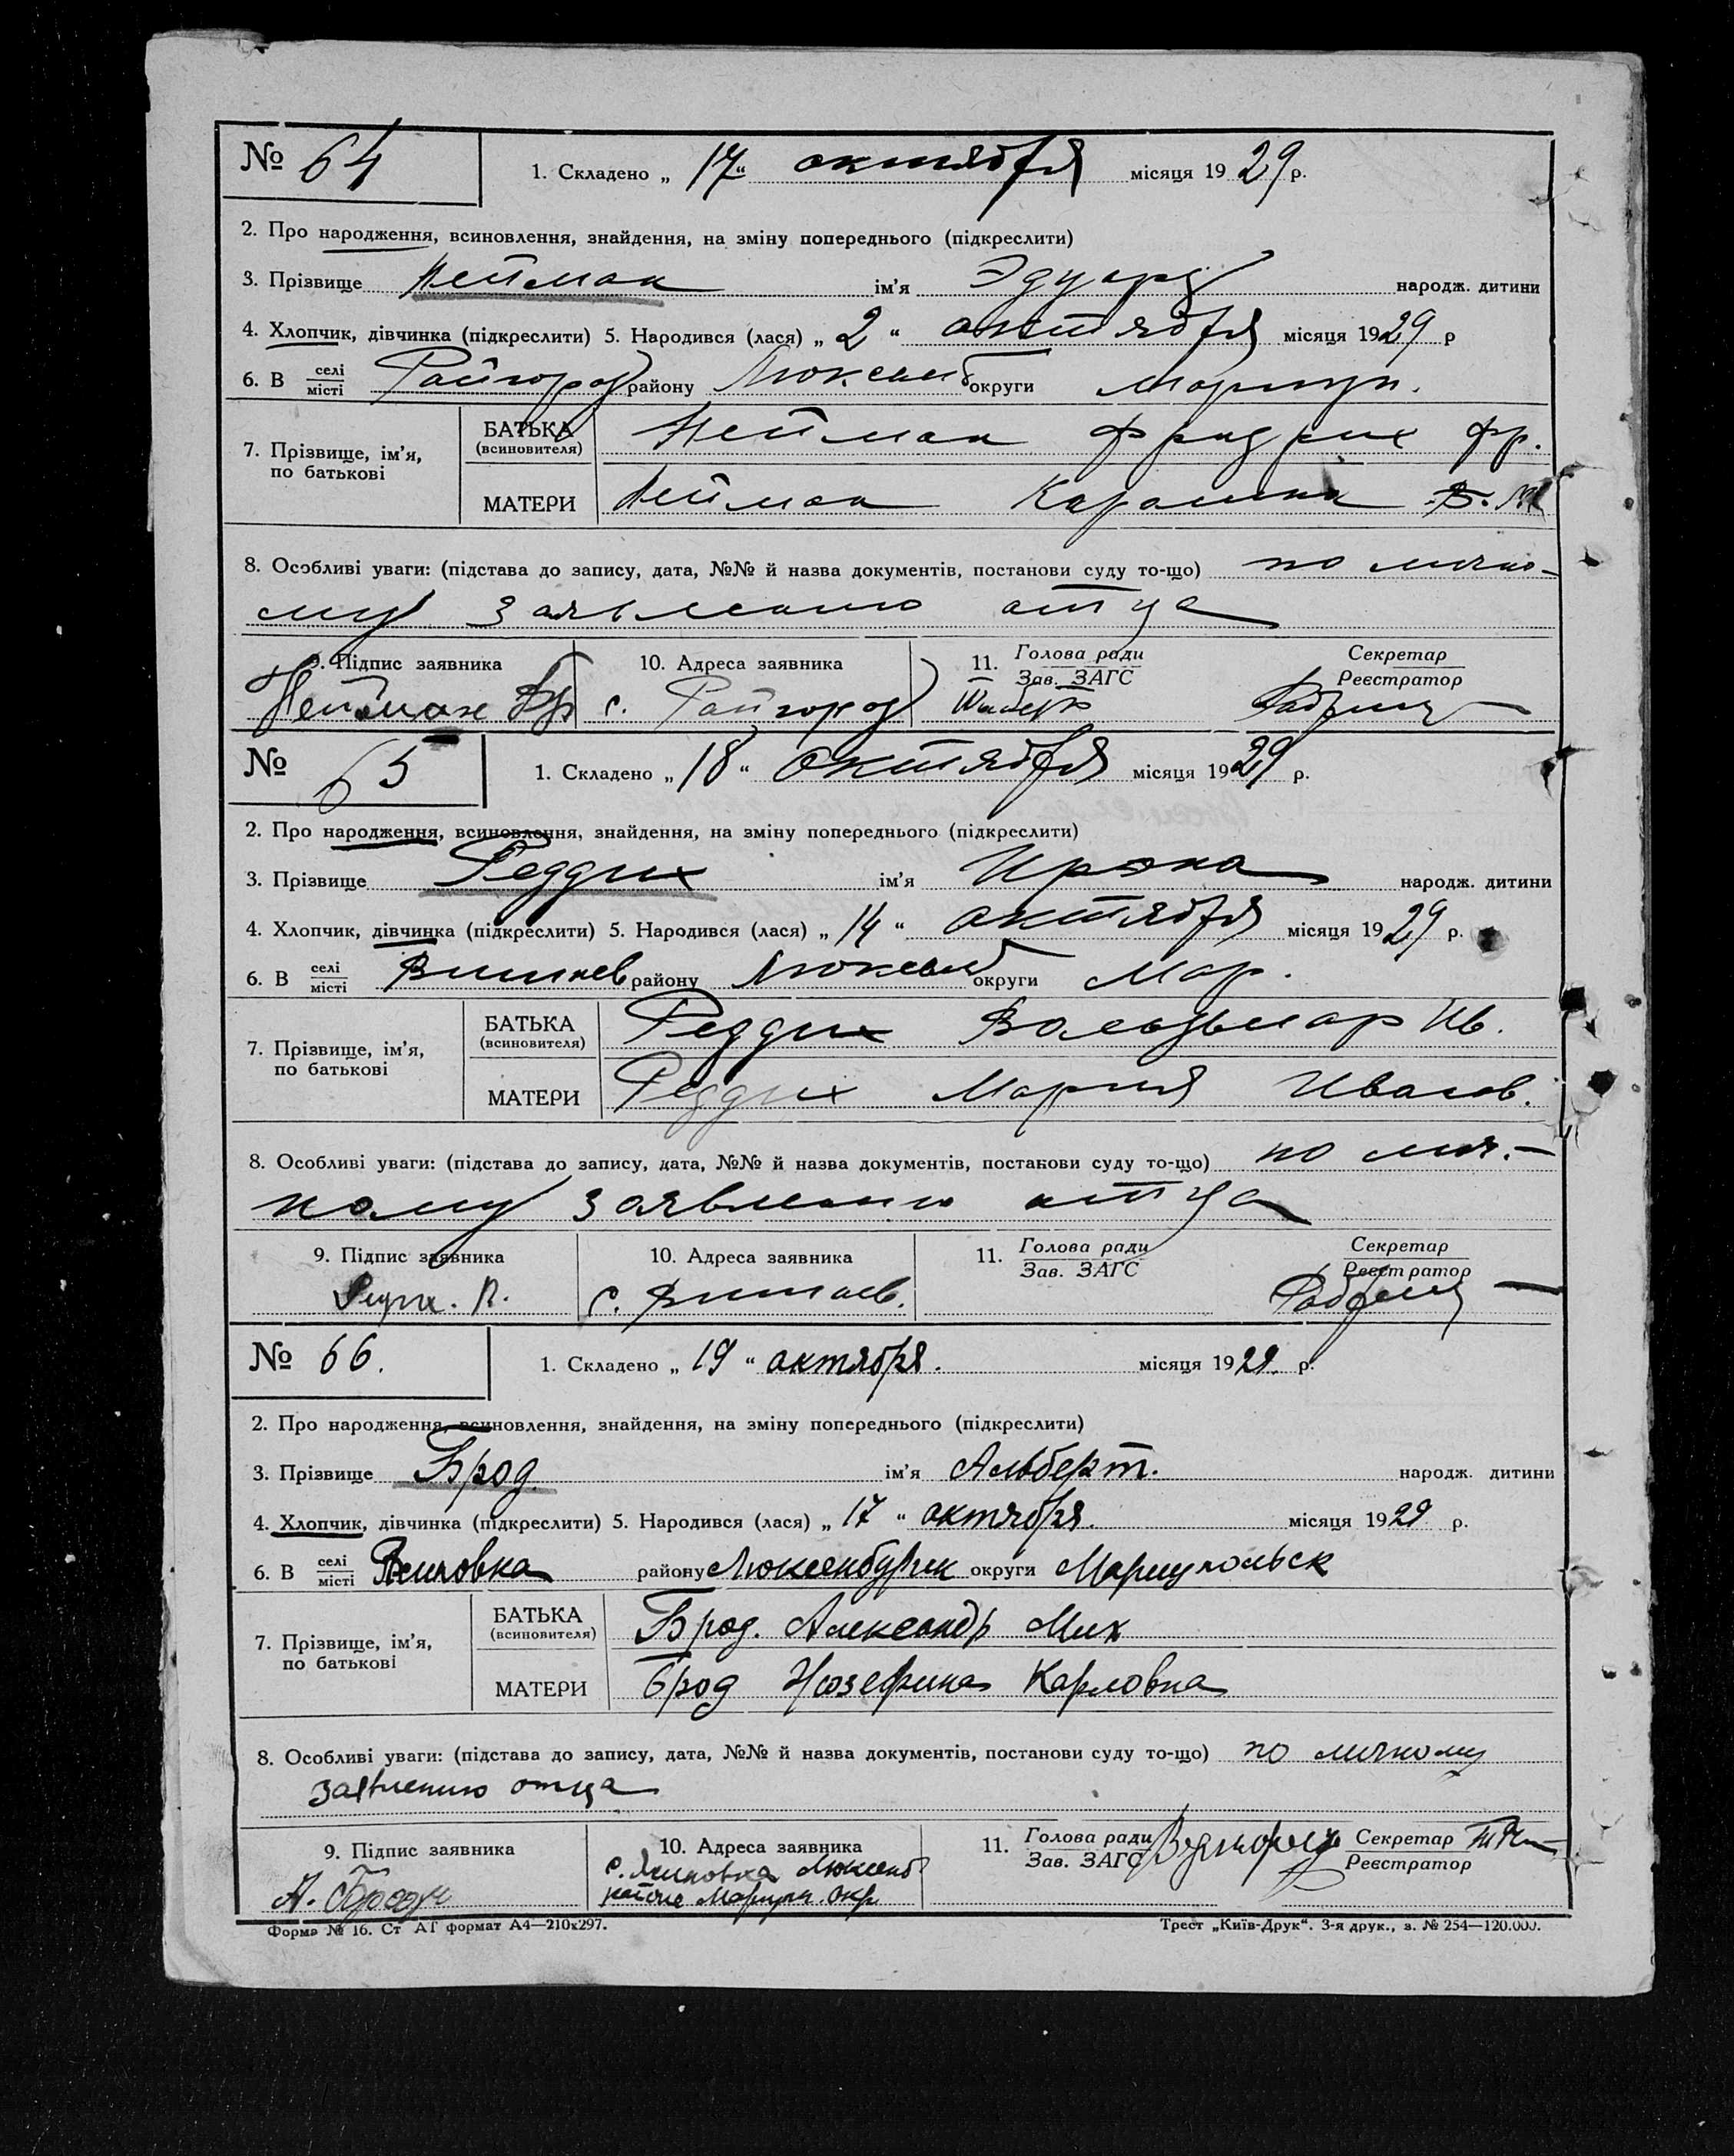 № 64 1. Складено „ 17 “ октября місяця 1929 р.
2. Про народження, всиновлення, знайдення, на зміну попереднього (підкреслити)
3. Прізвище Нейман ім’я Эдуард народж. дитини
4. Хлопчик, дівчинка (підкреслити) 5. Народився (лася) „ 2 “ октября місяця 1929 р
6. В селі місті Райгород району Люксемб округи Мариуп.
7. Прізвище, ім’я, по батькові
БАТЬКА (всиновителя) Нейман Фридрих Фр.
МАТЕРИ Нейман Каролина
8. Особливі уваги: (підстава до запису, дата, №№ й назва документів, постанови суду то-що) по лично-
му заявлению отца
9. Підпис заявника 10. Адреса заявника 11. Голова ради Зав. ЗАГС Секретар Реєстратор
Нейман Фр с. Райгород
№ 65 1. Складено „ 18 “ октября місяця 1929 р.
2. Про народження, всиновлення, знайдення, на зміну попереднього (підкреслити)
3. Прізвище Реддих ім’я Ирона народж. дитини
4. Хлопчик, дівчинка (підкреслити) 5. Народився (лася) „ 14 “ октября місяця 1929 р.
6. В селі місті району Люксемб округи Мар.
7. Прізвище, ім’я, по батькові
БАТЬКА (всиновителя) Реддих Вольдемар Ив.
МАТЕРИ Реддих Мария Иванов.
8. Особливі уваги: (підстава до запису, дата, №№ й назва документів, постанови суду то-що) по лич.-
ному заявлению отца
9. Підпис заявника 10. Адреса заявника 11. Голова ради Зав. ЗАГС Секретар Реєстратор
с.
№ 66. 1. Складено „ 19 “ октября. місяця 1929. р.
2. Про народження, всиновлення, знайдення, на зміну попереднього (підкреслити)
3. Прізвище Брод. ім’я Альберт. народж. дитини
4. Хлопчик, дівчинка (підкреслити) 5. Народився (лася) „ 17 “ октября. місяця 1929 р.
6. В селі місті Ясиновка району Люксенбургск округи Мариупольск
7. Прізвище, ім’я, по батькові
БАТЬКА (всиновителя) Брод. Александр Мих
МАТЕРИ Брод Иозефина Карловна
8. Особливі уваги: (підстава до запису, дата, №№ й назва документів, постанови суду то-що) по личному
заявлению отца
9. Підпис заявника 10. Адреса заявника 11. Голова ради Зав. ЗАГС Секретар Реєстратор
с. Ясиновка Люксенб
А. района Мариуп. Окр
Форма № 16. Ст АГ формат А4—210х297. Трест „Київ-Друк“. 3-я друк., з. № 254—120.000.